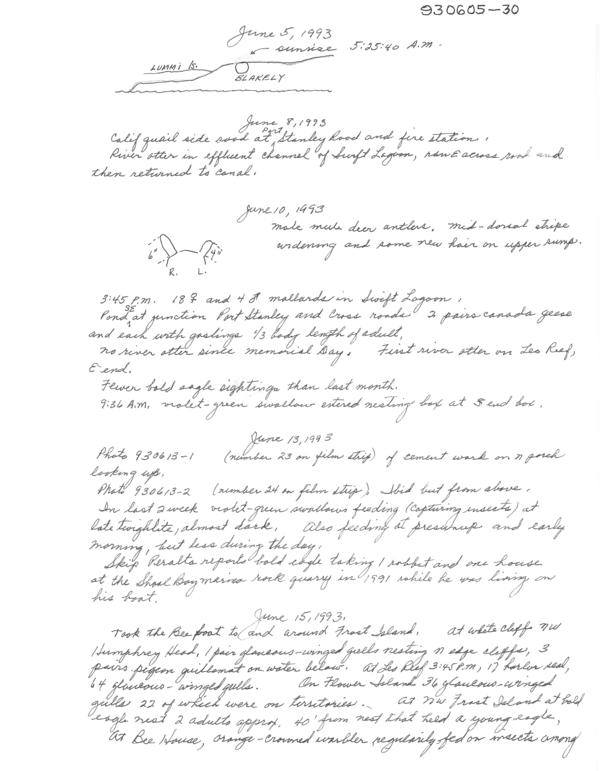 930605-30
June 5, 1993
← sunrise 5:25:40 A.M.
LUMMI Is.
BLAKELY
June 8, 1993
Calif quail side road at Port Stanley Road and fire station.
River otter in effluent channel of Swift Lagoon, ran E across road and
then returned to canal.
June 10, 1993
male mule deer antlers. mid-dorsal stripe
widening and some new hair on upper rump.
6" 4"
R. L.
3:45 P.M. 18 ♀ and 4 ♂ mallards in Swift Lagoon.
Pond SE at junction Port Stanley and Cross roads 2 pairs canada geese
and each with goslings 1/3 body length of adult.
no river otter since memorial Day. First river otter on Leo Reef,
E end.
Fewer bald eagle sightings than last month.
9:36 A.M. violet-green swallow entered nesting box at S end box.
June 13, 1993
Photo 930613-1 (number 23 on film strip) of cement work on n porch
looking up.
Photo 930613-2 (number 24 on film strip). Ibid but from above.
In last 2 week violet-green swallows feeding (capturing insects) at
late twighlite, almost dark. Also feeding at presunup and early
morning, but less during the day.
Skip Peralta reports bald eagle taking 1 rabbit and one house
at the Shoal Bay marina rock quarry in 1991 while he was living on
his boat.
June 15, 1993.
Took the Bee boat to and around Frost Island. At white cliffs NW
Humphrey Head, 1 pair glaucous-winged gulls nesting n edge cliffs, 3
pairs pigeon guillemot on water below. At Leo Reef 3:45 P.M., 17 harbor seal,
64 glaucous-winged gulls. On Flower Island 36 glaucous-winged
gulls 22 of which were on territories. At NW Frost Island at bald
eagle nest 2 adults approx. 40' from nest that held a young eagle.
At Bee House, orange-crowned warbler regularly fed on insects among